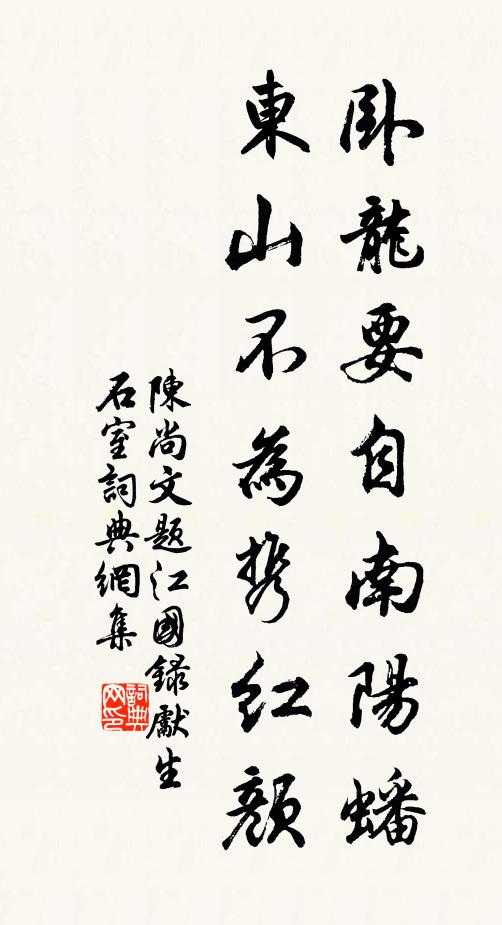 臥龍要自南陽蟠
東山不為携紅顏
陳尚文題江國録獻生
石室詞典網集
詞典網印